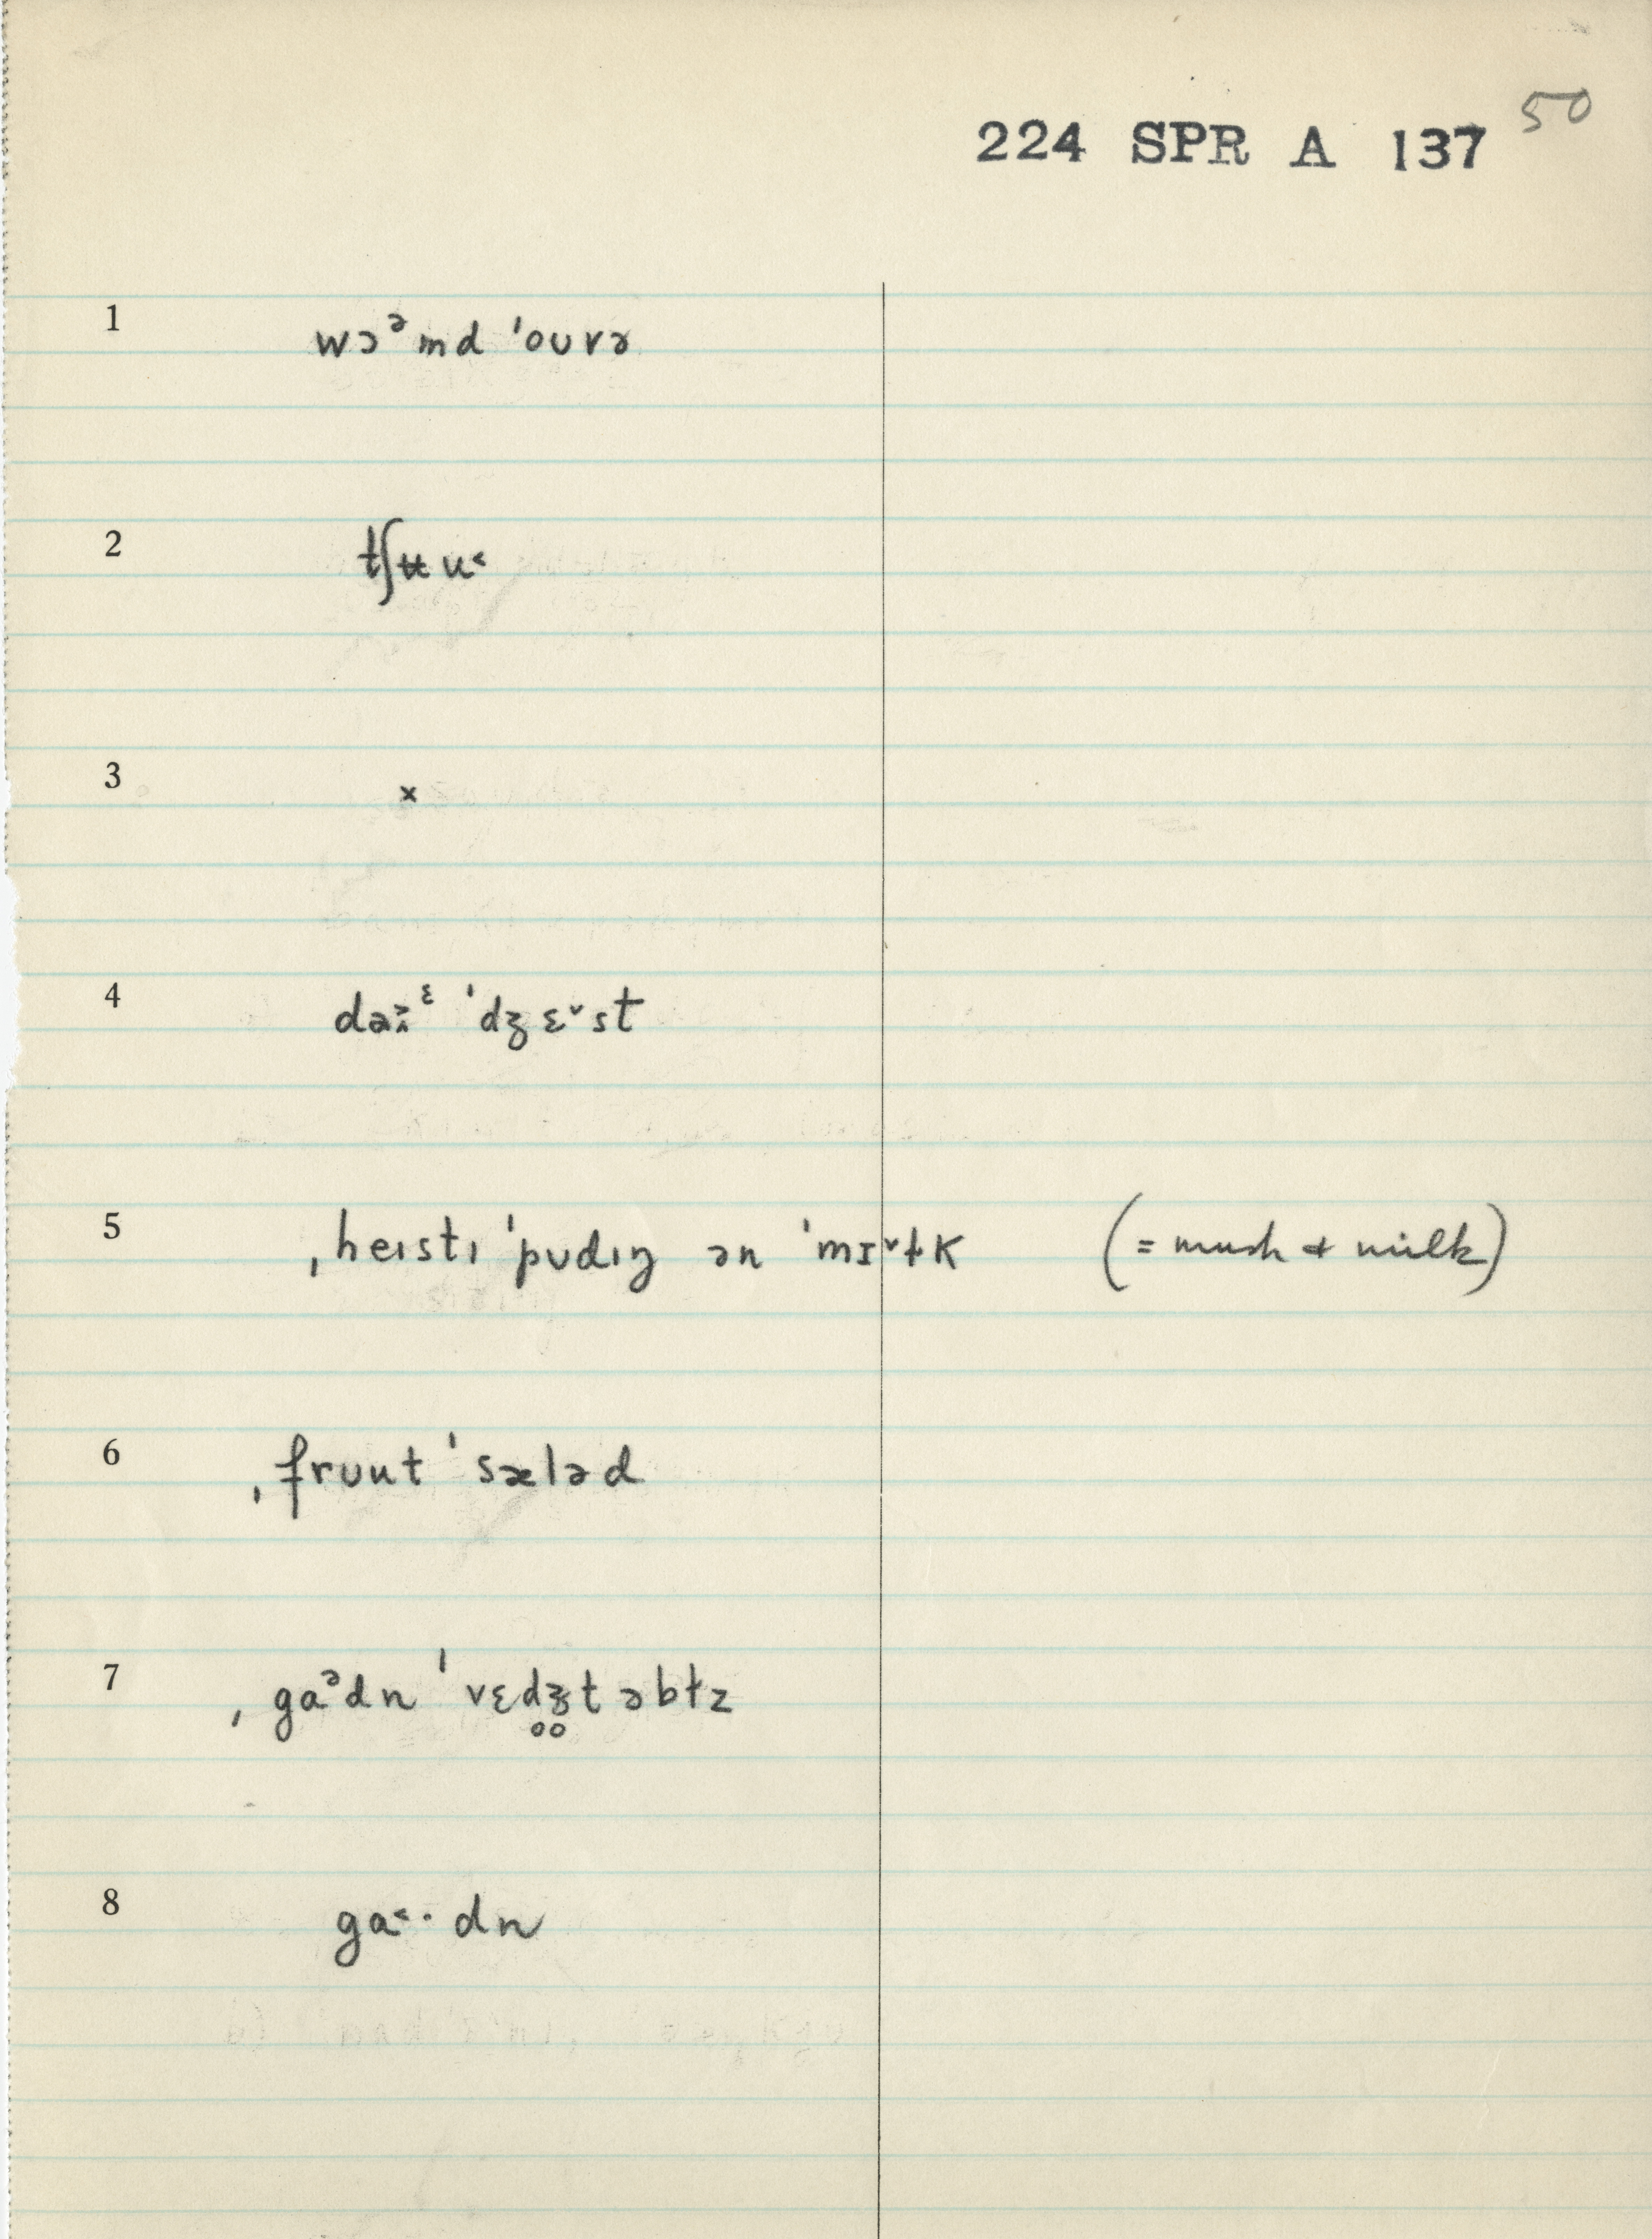 50
224 SPR A 137
1 wɔᵊmd ˈouvə
2 tʃʉu˂
3 ×
4 ˈdʒɛ˅st
5 ˌheɪstɪ ˈpʊdɪŋ ən ˈmɪ˅ɫk (= mush + milk)
6 ˌfrʊut ˈsæləd
7 ˌgaᵊdn ˈvɛd̥ʒ̥təbɫz
8 ga˂· dn